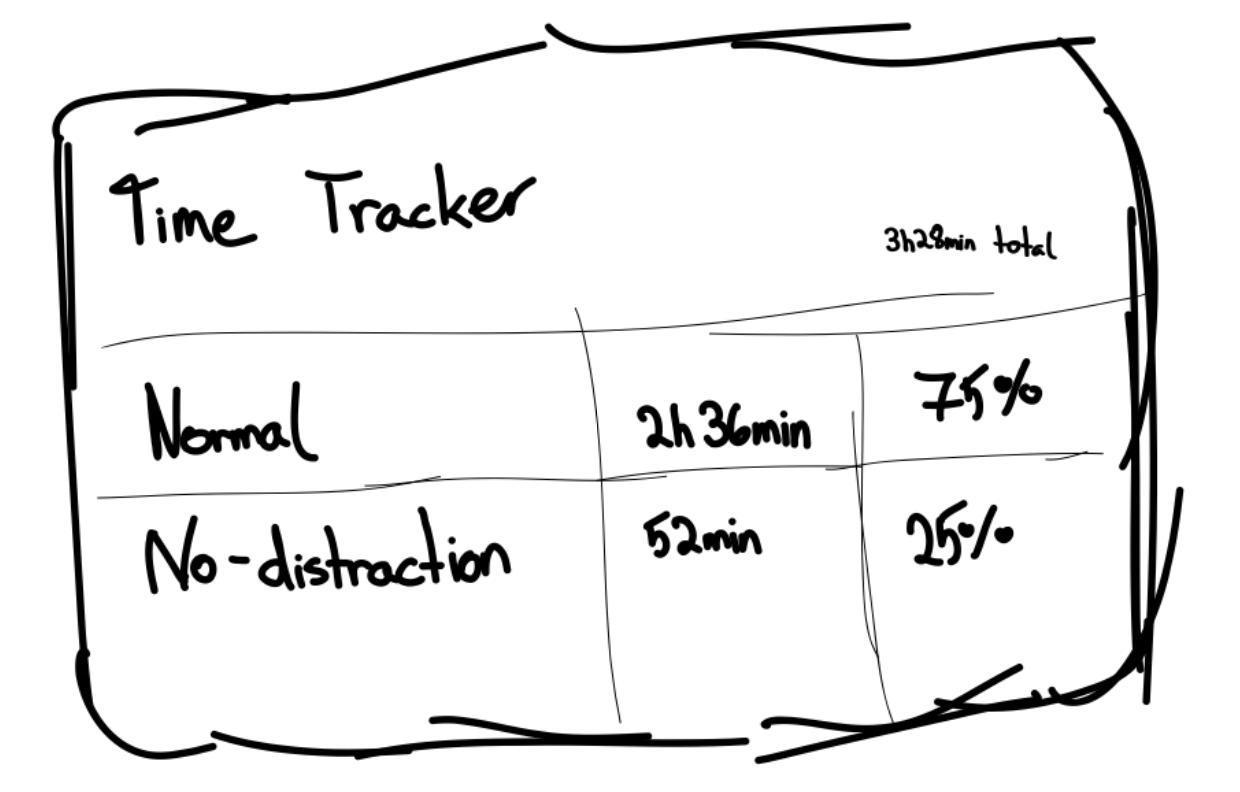 Time Tracker
3h28min total
Normal 2h36min 75%
No-distraction 52min 25%